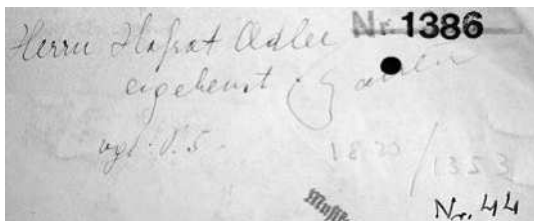 Herrn Hofrat Adler Nr. 1386
ergebenst
vgl. S. 5.
1353
Nr. 44